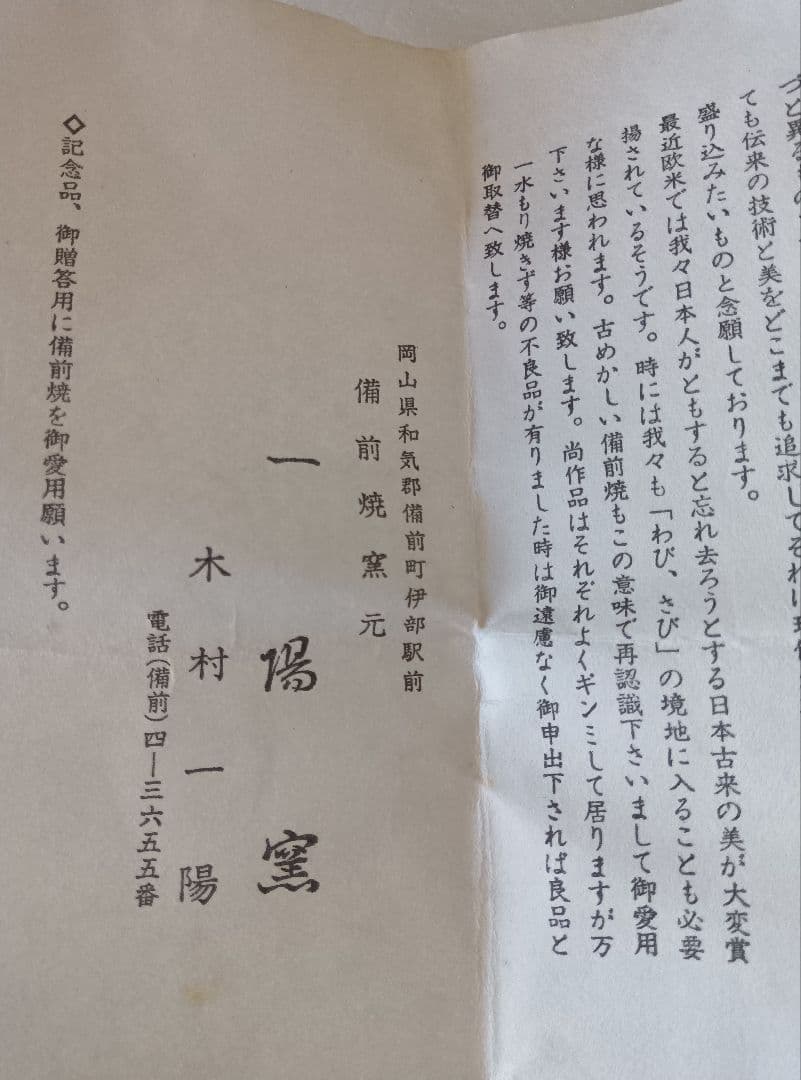 ても伝来の技術と美をどこまでも追求してそれに
盛り込みたいものと念願しております。
最近欧米では我々日本人がともすると忘れ去ろうとする日本古来の美が大変賞
揚されているそうです。時には我々も「わび、さび」の境地に入ることも必要
な様に思われます。古めかしい備前焼もこの意味で再認識下さいまして御愛用
下さいます様お願い致します。尚作品はそれぞれよくギンミして居りますが万
一水もり焼きず等の不良品が有りました時は御遠慮なく御申出下されば良品と
御取替へ致します。
岡山県和気郡備前町伊部駅前
備前焼窯元
一陽窯
木村一陽
電話(備前)四―三六五五番
◇記念品、御贈答用に備前焼を御愛用願います。